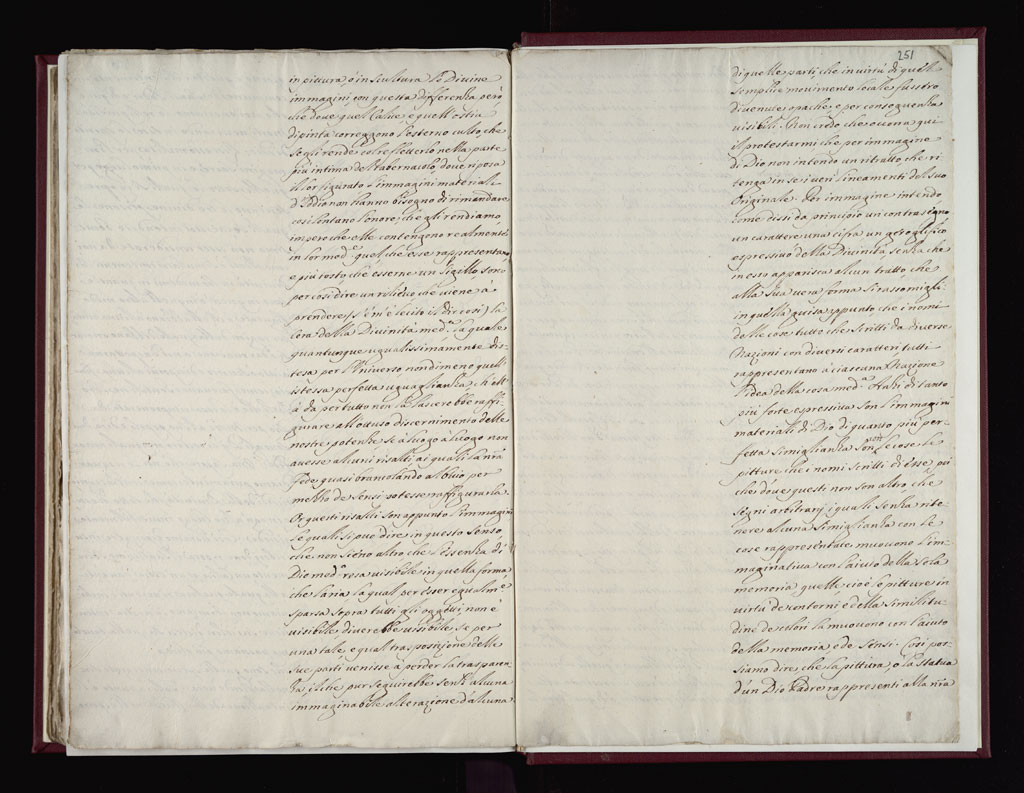 in pittura, o in scultura le Divine
immagini, con questa differenza però
che dove quel Calice, e quell'Ostia
dipinta correggono l'esterno culto che
se gli rende col refletterlo nella parte
più intima del Tabernacolo, dove riposa
il lor figurato l'immagini materiali
d'Iddio non hanno bisogno di rimandare
così lontano l'onore, che gli rendiamo
impero che elle contengono realmente
in lor med.e quel che esse rappresentano
e più tosto, che esserne un sigillo sono
per così dire un rilievo che viene à
prendere (s'è m'è lecito il dir così) la
cera della Divinità med.a la quale
quantunque ugualissimamente dis-
tesa per l'Universo, nondimeno quell'
istessa perfetta uguaglianza, ch'ell'
à da per tutto non la lascerebbe raffi-
gurare all'ottuso discernimento delle
nostre potenze se à luogo à luogo non
avesse alcuni risalti ai quali la nrã
fede quasi brancolando al buio per
mezzo de sensi potesse raffigurarla.
Or questi risalti son appunto l'immagini
le quali si può dire in questo senso
che non sieno altro che l'essenza di
Dio med.a resa visibile in quella forma
che l'aria la qual per esser egualm.e
sparsa sopra tutti gli oggetti non è
visibile diverebbe visibile se per
una tale, e qual trasposizione delle
sue parti venisse à perder la trasparen-
za, il che pur seguirebbe senz'alcuna
immaginabile alterazione d'alcuna
251
di quelle parti, che in virtù di quel
semplice movimento locale fussero
divenute opache, e per conseguenza
visibili. Non credo che occorra qui
il protestarmi che per immagine
di Dio non intendo un ritratto, che ri-
tenga in se i veri lineamenti del suo
Originale. Per immagine intendo
come dissi da principio un contrasegno
un carattere una cifra un geroglifico
espressivo della Divinità, senza che
in esso apparisca alcun tratto, che
alla sua vera forma si rassomigli:
in quella guisa appunto che i nomi
delle cose tutto che scritti da diverse
Nazioni con diversi caratteri, tutti
rappresentano à ciascuna Nazione
l'idea della cosa med.a Anzi di tanto
più forte espressiva son l'immagini
materiali di Dio di quanto più per-
fetta simiglianza son con le cose le
pitture che i nomi scritti di esse, poi
che dove questi non son altro che
segni arbitrarj i quali senza rite-
nere alcuna simiglianza con le
cose rappresentate muovono l'im-
maginativa con l'aiuto della sola
memoria, quelle cioè le pitture in
virtù de contorni, e della similitu-
dine de colori la muovono con l'aiuto
della memoria, e de sensi. Così pos-
siamo dire che la pittura, o la statua
d'un Dio Padre rappresenti alla nrã